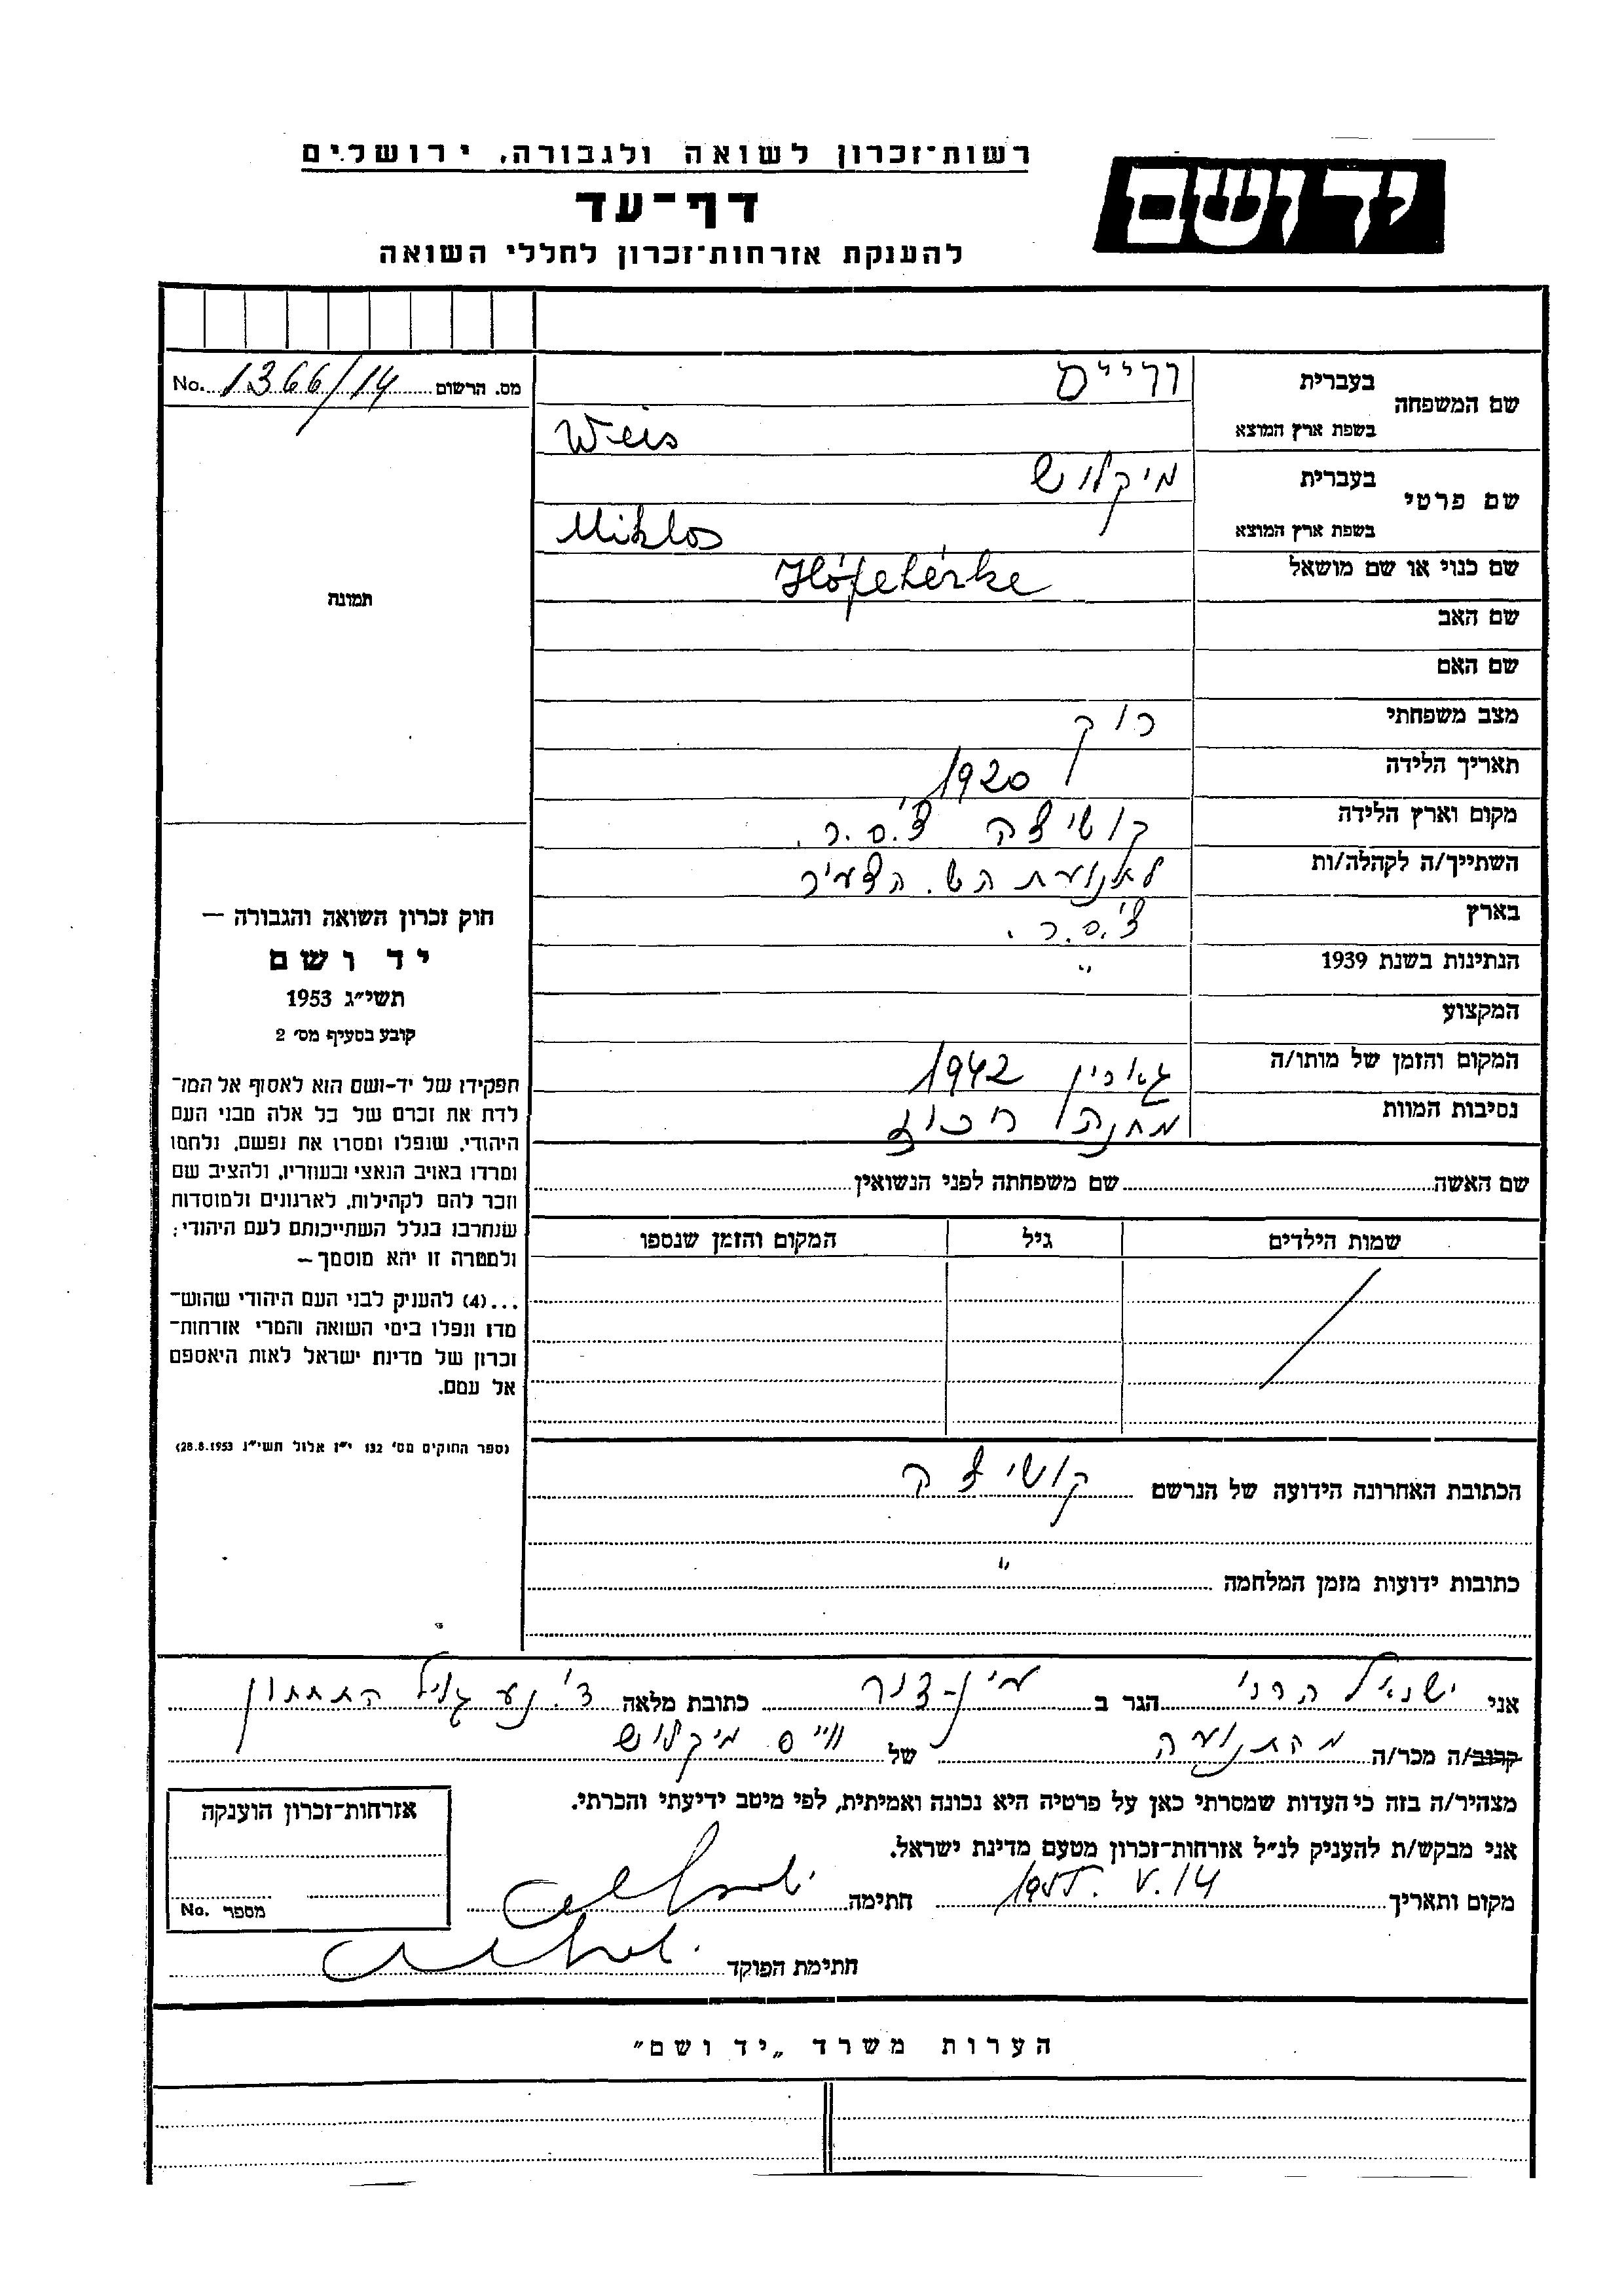 רשות־זכרון לשואה ולגבורה, ירושלים
יד ושם
דף־עד
להענקת אזרחות־זכרון לחללי השואה
מס. הרשום 1366/14 No.
שם המשפחה בעברית ווייס
בשפת ארץ המוצא Weis
שם פרטי בעברית מיקלוש
בשפת ארץ המוצא Miklos
שם כנוי או שם מושאל Hófehérke
שם האב
שם האם
מצב משפחתי רוק
תאריך הלידה 1920
מקום וארץ הלידה קושיצה צ'.ס.ר.
השתייך/ה לקהלה/ות לתנועת הש. הצעיר
בארץ צ'.ס.ר.
הנתינות בשנת 1939 "
המקצוע
המקום והזמן של מותו/ה 1942
נסיבות המוות מחנה ריכוז
תמונה
חוק זכרון השואה והגבורה —
יד ושם
תשי״ג 1953
קובע בסעיף מס׳ 2
תפקידו של יד-ושם הוא לאסוף אל המו־
לדת את זכרם של כל אלה מבני העם
היהודי, שנפלו ומסרו את נפשם, נלחמו
ומרדו באויב הנאצי ובעוזריו, ולהציב שם
וזכר להם לקהילות, לארגונים ולמוסדות
שנחרבו בגלל השתייכותם לעם היהודי;
ולמטרה זו יהא מוסמך —
...(4) להעניק לבני העם היהודי שהוש־
מדו ונפלו בימי השואה והמרי אזרחות־
זכרון של מדינת ישראל לאות היאספם
אל עמם.
(ספר החוקים מס׳ 132 י״ז אלול תשי״ג 28.8.1953)
שם האשה שם משפחתה לפני הנשואין
שמות הילדים גיל המקום והזמן שנספו
הכתובת האחרונה הידועה של הנרשם קושיצה
כתובות ידועות מזמן המלחמה "
אני ישראל הררי הגר ב כתובת מלאה ד'. נע גליל התחתון
קרוב/ה מכר/ה מהתנועה של ווייס מיקלוש
מצהיר/ה בזה כי העדות שמסרתי כאן על פרטיה היא נכונה ואמיתית, לפי מיטב ידיעתי והכרתי.
אני מבקש/ת להעניק לנ״ל אזרחות־זכרון מטעם מדינת ישראל.
מקום ותאריך 14.V.1955 חתימה
חתימת הפוקד
אזרחות־זכרון הוענקה
מספר No.
הערות משרד „יד ושם״